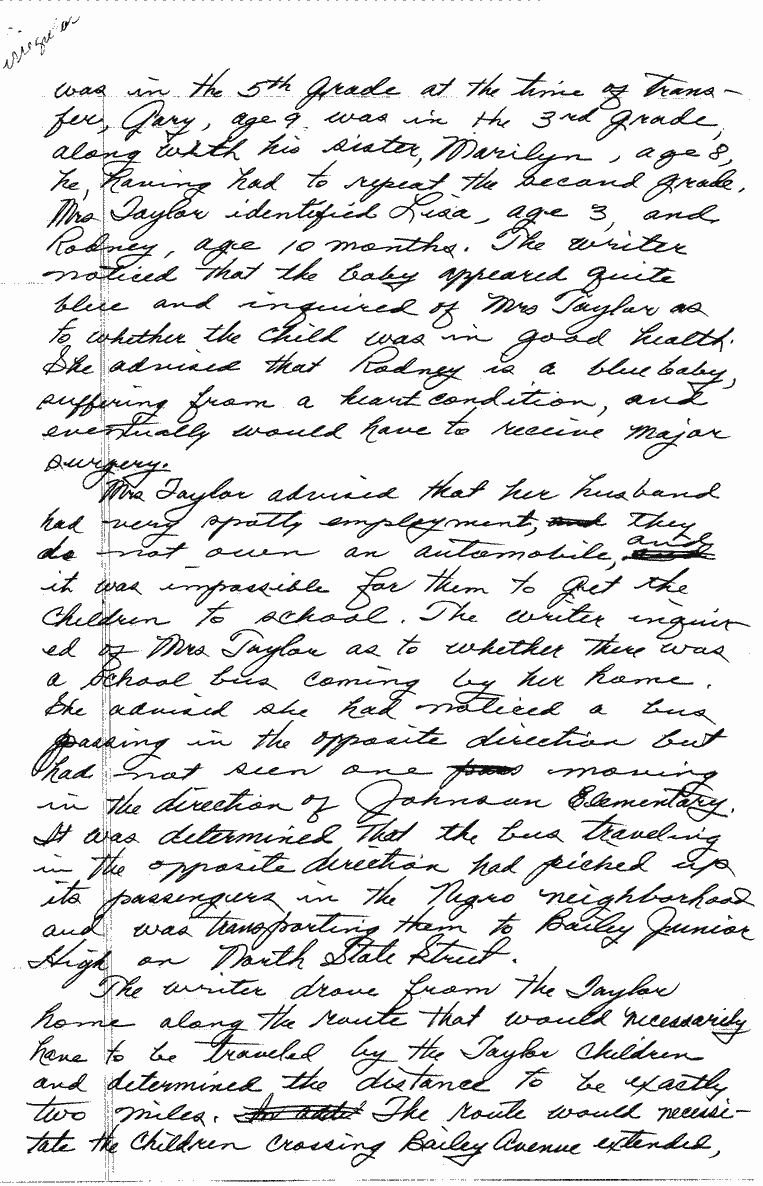 was in the 5th grade at the time of trans-
fer, Gary, age 9 was in the 3rd grade,
along with his sister, Marilyn, age 8,
he, having had to repeat the second grade.
Mrs Taylor identified Lisa, age 3, and
Rodney, age 10 months. The writer
noticed that the baby appeared quite
blue and inquired of Mrs Taylor as
to whether the child was in good health.
She advised that Rodney is a blue baby,
suffering from a heart condition, and
eventually would have to receive major
surgery.
Mrs Taylor advised that her husband
had very spotty employment, and they
do not own an automobile, and
it was impossible for them to get the
children to school. The writer inquir-
ed of Mrs Taylor as to whether there was
a school bus coming by her home.
She advised she had noticed a bus
passing in the opposite direction but
had not seen one pass moving
in the direction of Johnson Elementary.
It was determined that the bus traveling
in the opposite direction had picked up
its passengers in the Negro neighborhood
and was transporting them to Bailey Junior
High on North State Street.
The writer drove from the Taylor
home along the route that would necessarily
have to be traveled by the Taylor children
and determined the distance to be exactly
two miles. The route would necessi-
tate the children crossing Bailey Avenue extended,